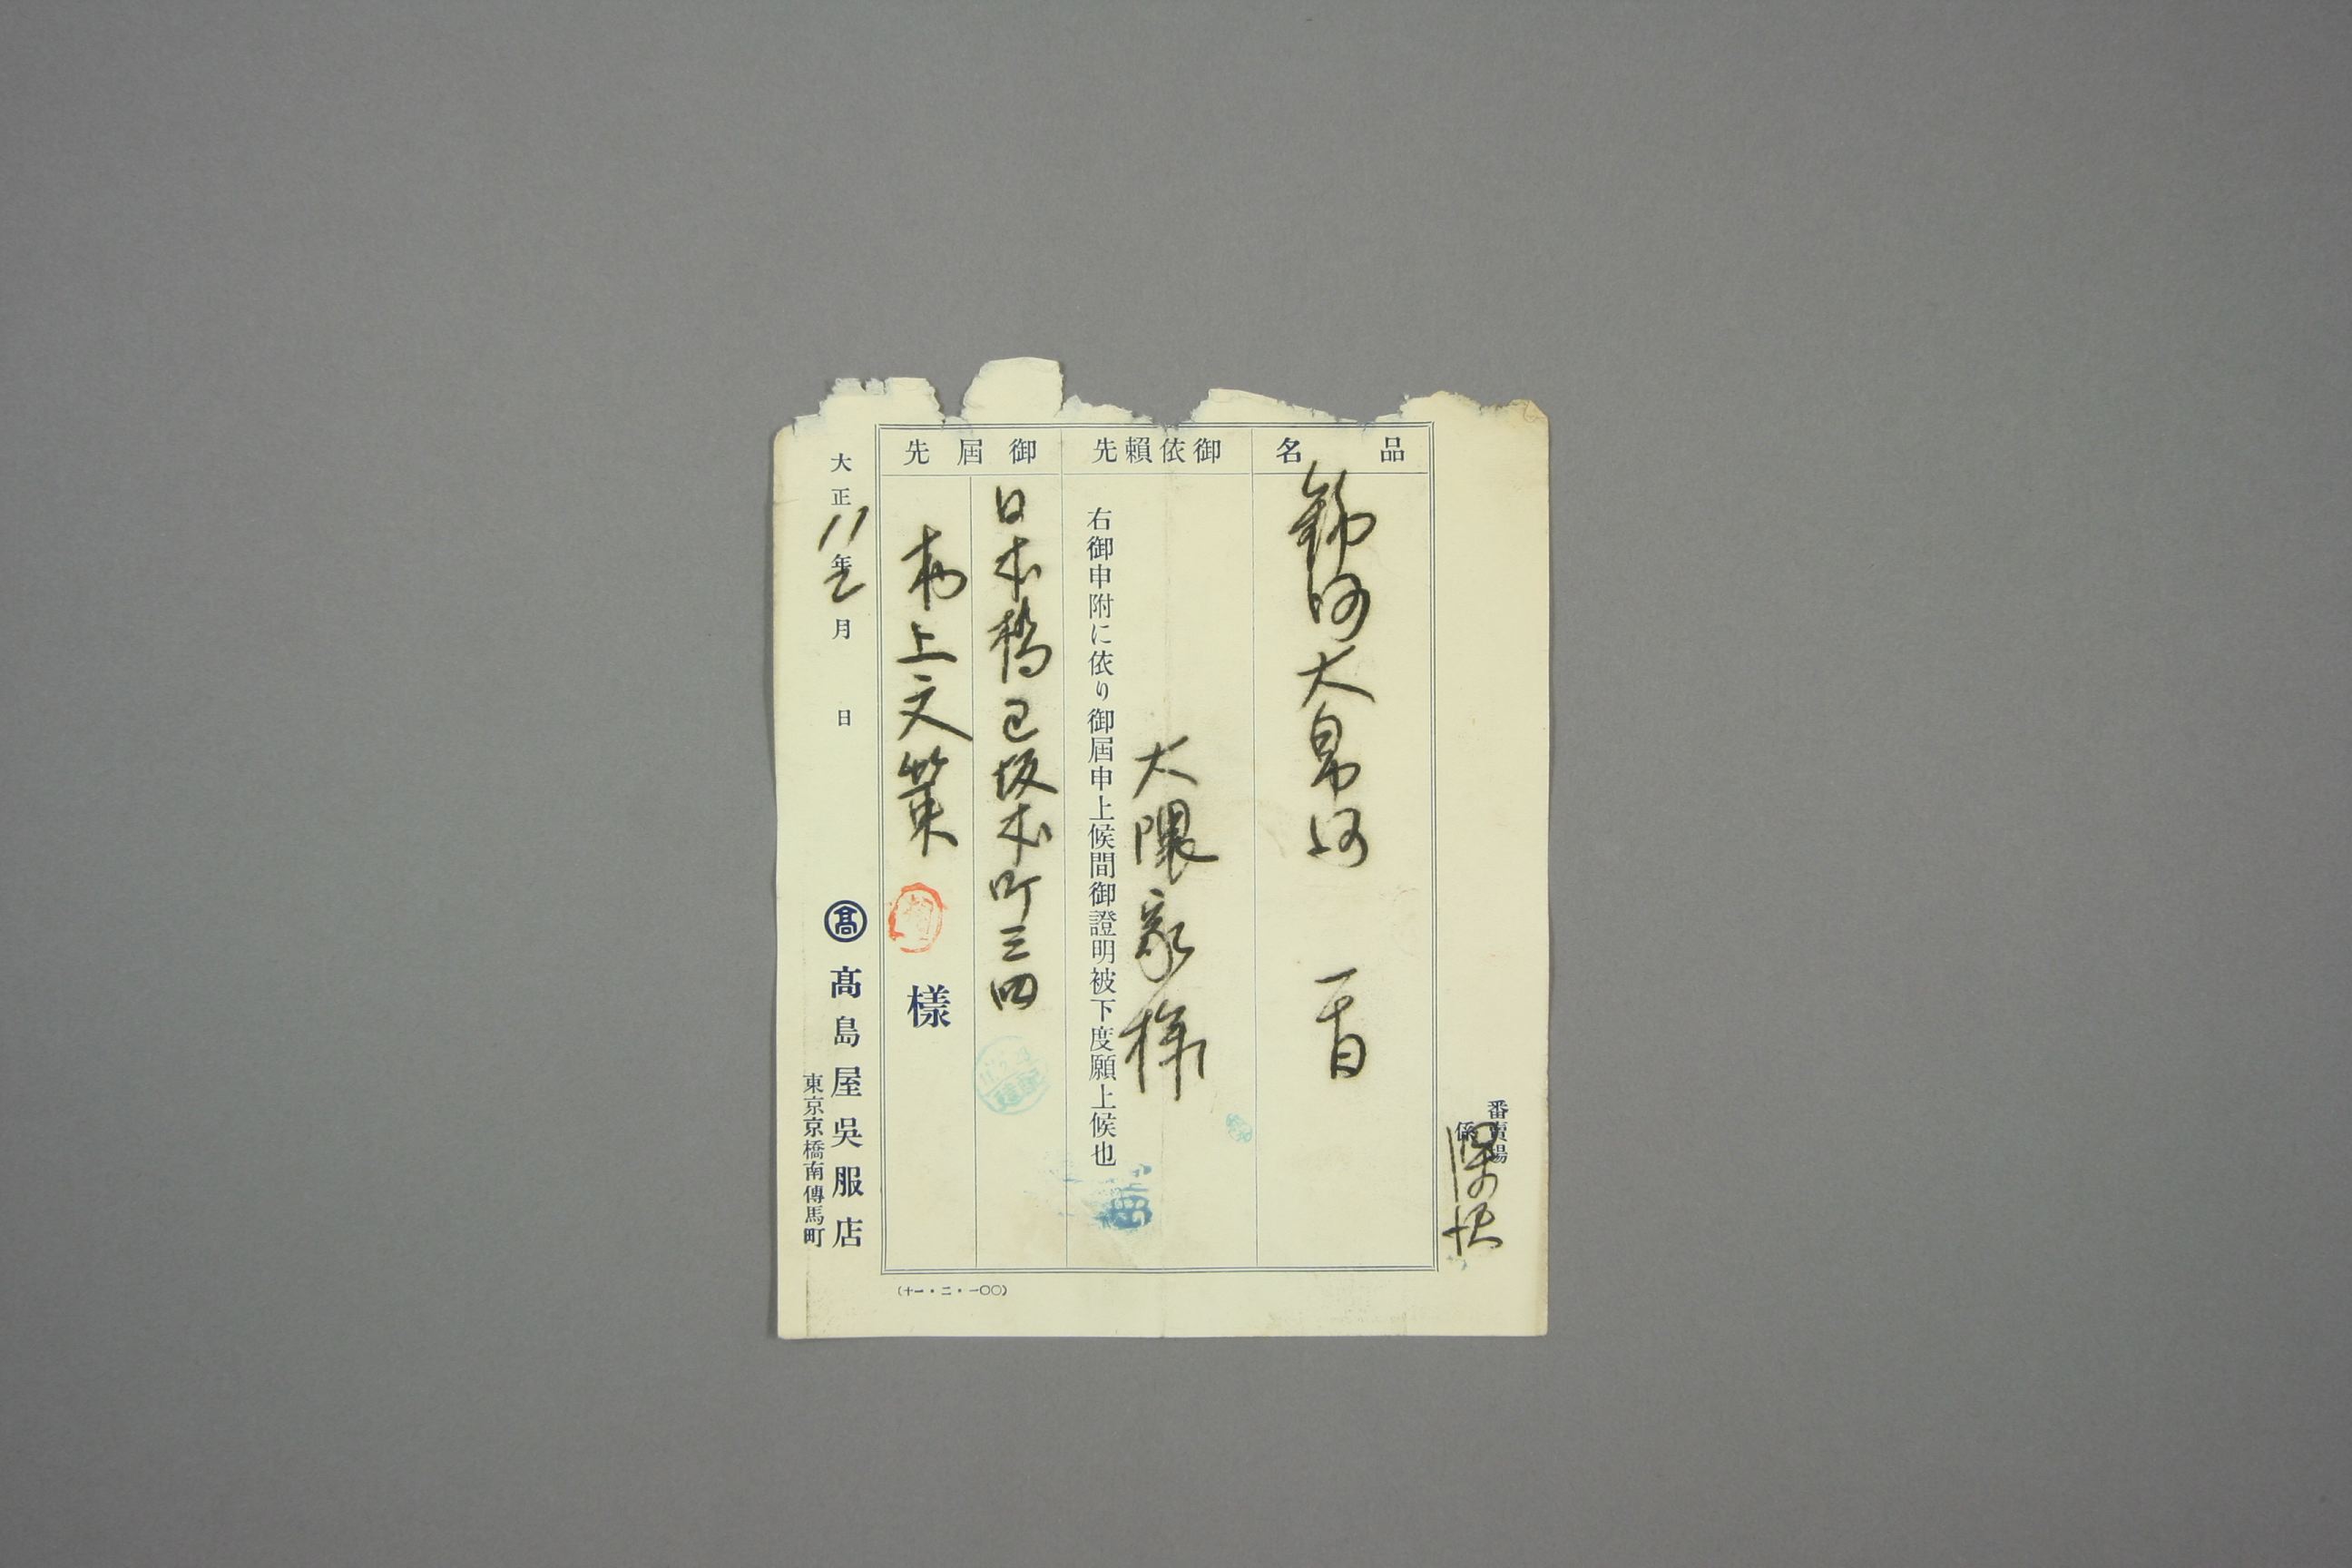 番賣場
係
品名
大
御依賴先
大隈家様
右御申附に依り御屆申上候間御證明被下度願上候也
御屆先
日本橋区坂本町三四
村上文策
樣
大正11年2月 日
髙
髙島屋吳服店
東京京橋南傳馬町
(十一・二・一〇〇)